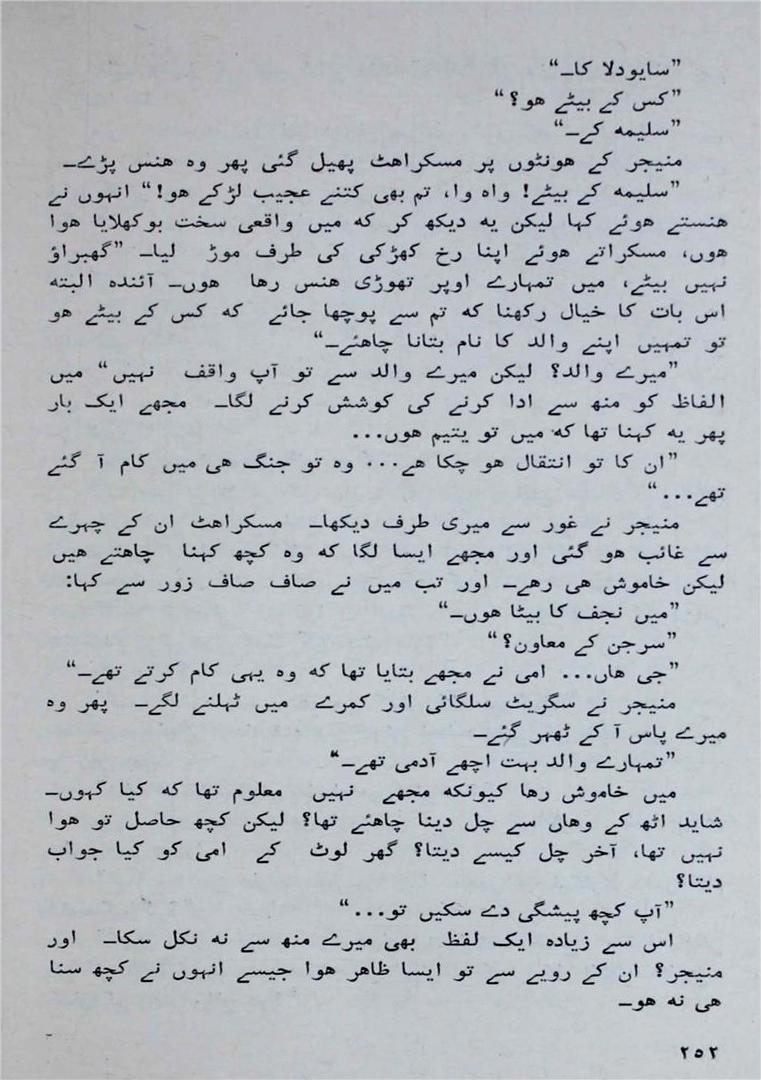 ”سایودلا کا۔“
”کس کے بیٹے ھو؟“
”سلیمه کے۔“
منیجر کے ھونٹوں پر مسکراھٹ پھیل گئی پھر وہ ھنس پڑے۔
”سلیمه کے بیٹے! واہ وا، تم بھی کتنے عجیب لڑکے ھو!“ انہوں نے
ھنستے ھوئے کہا لیکن یه دیکھ کر که میں واقعی سخت بوکھلایا ھوا
ھوں، مسکراتے ھوئے اپنا رخ کھڑکی کی طرف موڑ لیا۔ ”گھبراؤ
نہیں بیٹے، میں تمہارے اوپر تھوڑی ھنس رھا ھوں۔ آئندہ البته
اس بات کا خیال رکھنا که تم سے پوچھا جائے که کس کے بیٹے ھو
تو تمہیں اپنے والد کا نام بتانا چاھئے۔“
”میرے والد؟ لیکن میرے والد سے تو آپ واقف نہیں“ میں
الفاظ کو منھ سے ادا کرنے کی کوشش کرنے لگا۔ مجھے ایک بار
پھر یه کہنا تھا که میں تو یتیم ھوں...
”ان کا تو انتقال ھو چکا ھے... وہ تو جنگ ھی میں کام آ گئے
تھے...“
منیجر نے غور سے میری طرف دیکھا۔ مسکراھٹ ان کے چہرے
سے غائب ھو گئی اور مجھے ایسا لگا که وہ کچھ کہنا چاھتے ھیں
لیکن خاموش ھی رھے۔ اور تب میں نے صاف صاف زور سے کہا:
”میں نجف کا بیٹا ھوں۔“
”سرجن کے معاون؟“
”جی ھاں... امی نے مجھے بتایا تھا که وہ یہی کام کرتے تھے۔“
منیجر نے سگریٹ سلگائی اور کمرے میں ٹہلنے لگے۔ پھر وہ
میرے پاس آ کے ٹھہر گئے۔
”تمہارے والد بہت اچھے آدمی تھے۔“
میں خاموش رھا کیونکه مجھے نہیں معلوم تھا که کیا کہوں۔
شاید اٹھ کے وھاں سے چل دینا چاھئے تھا؟ لیکن کچھ حاصل تو ھوا
نہیں تھا، آخر چل کیسے دیتا؟ گھر لوٹ کے امی کو کیا جواب
دیتا؟
”آپ کچھ پیشگی دے سکیں تو...“
اس سے زیادہ ایک لفظ بھی میرے منھ سے نه نکل سکا۔ اور
منیجر؟ ان کے رویے سے تو ایسا ظاھر ھوا جیسے انہوں نے کچھ سنا
ھی نه ھو۔
۲۵۲